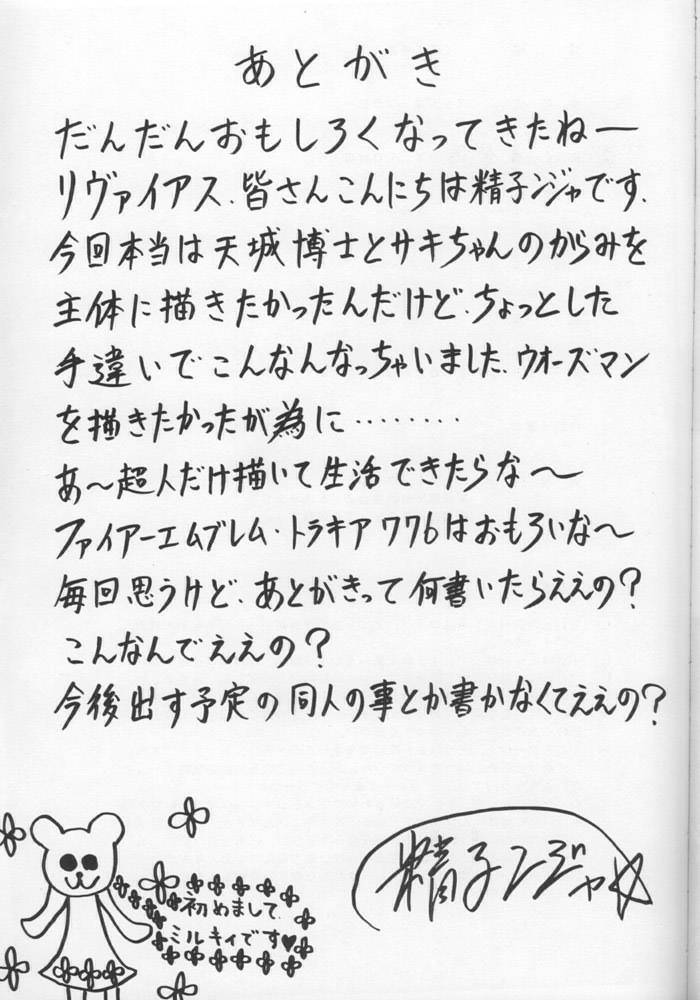 あとがき
だんだんおもしろくなってきたねー
リヴァイアス、皆さんこんにちは精子ンジャです、
今回本当は天城博士とサキちゃんのがらみを
主体に描きたかったんだけど、ちょっとした
手違いでこんなんなっちゃいました、ウオーズマン
を描きたかったが為に………
あ〜超人だけ描いて生活できたらな〜
ファイアーエムブレム・トラキア776はおもろいな〜
毎回思うけど、あとがきって何書いたらええの？
こんなんでええの？
今後出す予定の同人の事とか書かなくてええの？
初めまして、
ミルキィです♥
精子ンジャ☆